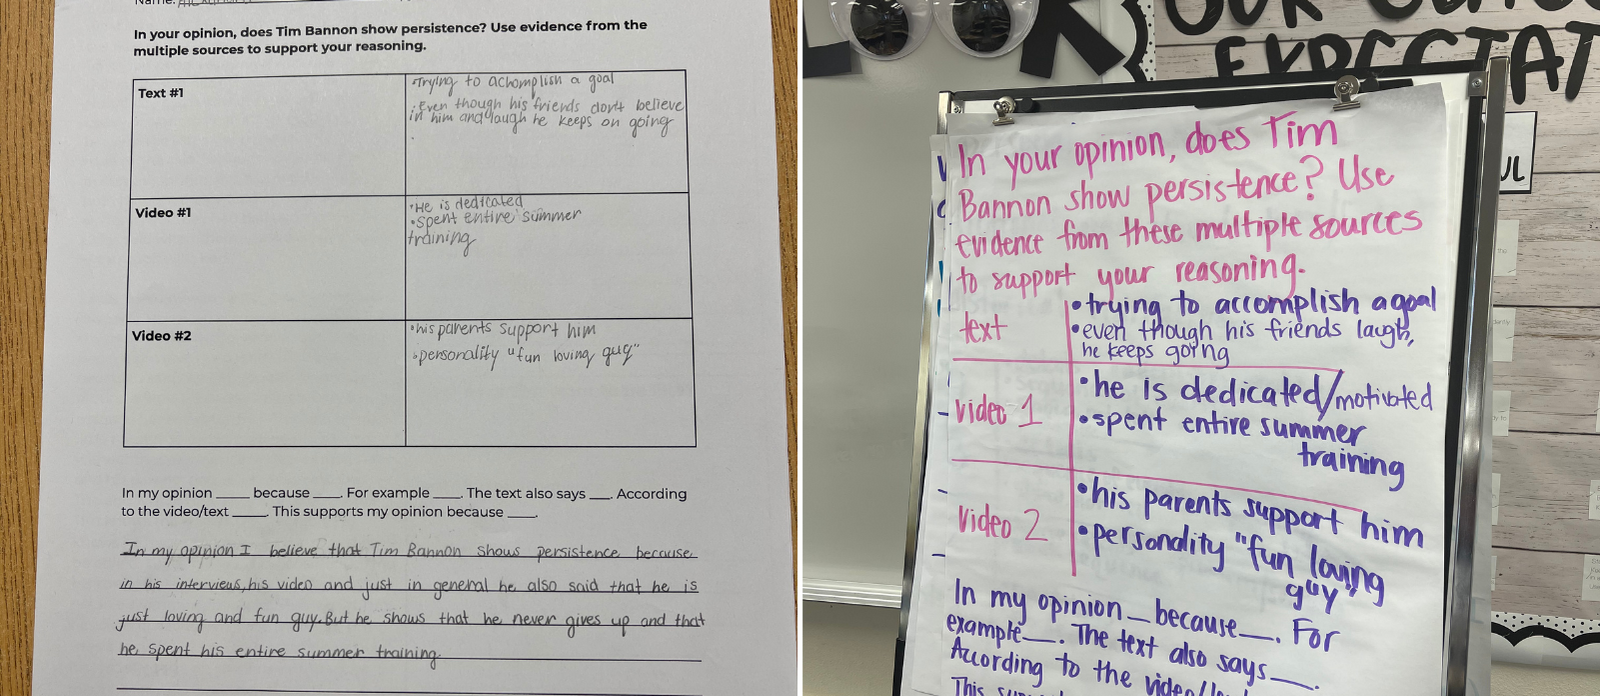 Name:
In your opinion, does Tim Bannon show persistence? Use evidence from the
multiple sources to support your reasoning.
Text #1
•Trying to achomplish a goal
•Even though his friends don't believe
in him and laugh he keeps on going
Video #1
•He is dedicated
•Spent entire summer
training
Video #2
•his parents support him
•personality "fun loving guy"
In my opinion ____ because ____. For example ____. The text also says ___. According
to the video/text _____. This supports my opinion because ____.
In my opinion I believe that Tim Bannon shows persistence because
in his interviews, his video and just in general he also said that he is
just loving and fun guy. But he shows that he never gives up and that
he spent his entire summer training
EXPECTAT
In your opinion, does Tim
Bannon show persistence? Use
evidence from these multiple sources
to support your reasoning.
text
•trying to accomplish a goal
•even though his friends laugh,
he keeps going
video 1
•he is dedicated/motivated
•spent entire summer
training
video 2
•his parents support him
•personality "fun loving
guy"
In my opinion __ because __. For
example __. The text also says __.
According to the video/
This